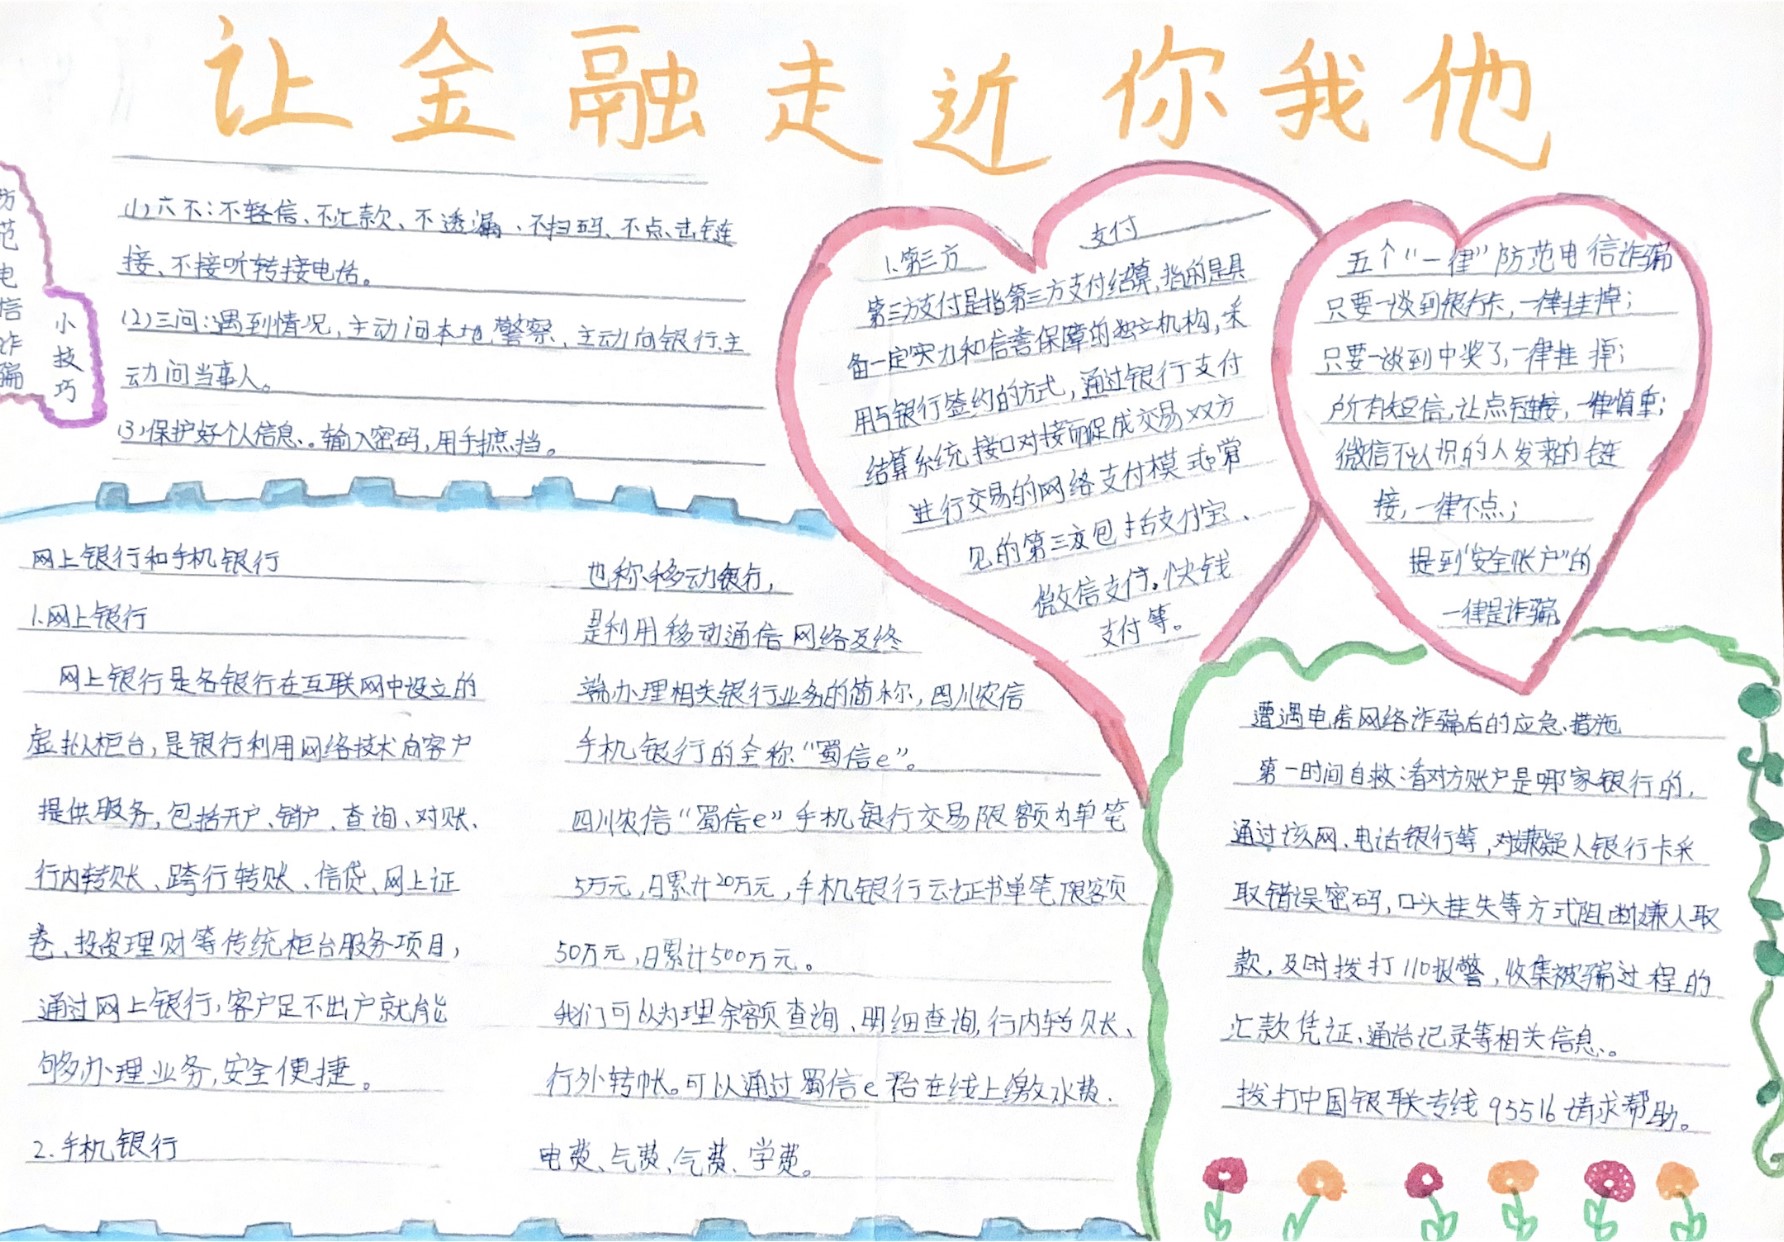 让金融走近你我他
防范电信诈骗
小技巧
(1)六不:不轻信、不汇款、不透漏、不扫码、不点击链
接、不接听转接电话。
(2)三问:遇到情况,主动问本地警察、主动向银行、主
动问当事人。
(3)保护好个人信息。输入密码,用手摭挡。
网上银行和手机银行
1.网上银行
网上银行是各银行在互联网中设立的
虚拟柜台,是银行利用网络技术向客户
提供服务,包括开户、销户、查询、对账、
行内转账、跨行转账、信贷、网上证
卷、投资理财等传统柜台服务项目,
通过网上银行,客户足不出户就能
够办理业务,安全便捷。
2.手机银行
也称移动银行,
是利用移动通信网络及终
端办理相关银行业务的简称,四川农信
手机银行的全称“蜀信e”。
四川农信“蜀信e”手机银行交易限额为单笔
5万元,日累计20万元,手机银行云证书单笔限额
50万元,日累计500万元。
我们可以办理余额查询、明细查询,行内转账、
行外转帐。可以通过蜀信e 在线上缴水费、
电费、气费、气费、学费。
1.第三方 支付
第三方支付是指第三方支付结算,指的是具
备一定实力和信誉保障的独立机构,采
用与银行签约的方式,通过银行支付
结算系统接口对接而促成交易双方
进行交易的网络支付模式。常
见的第三支包括支付宝、
微信支付。快钱
支付等。
五个“一律”防范电信诈骗
只要一谈到银行卡,一律挂掉;
只要一谈到中奖了,一律挂掉;
所有短信,让点链接,一律慎重;
微信不认识的人发来的链
接,一律不点;
提到“安全帐户”的
一律是诈骗
遭遇电信网络诈骗后的应急措施
第一时间自救:看对方账户是哪家银行的,
通过该网、电话银行等,对嫌疑人银行卡采
取错误密码,口头挂失等方式阻断嫌人取
款,及时拨打110报警,收集被骗过程的
汇款凭证,通话记录等相关信息。
拨打中国银联专线95516请求帮助。